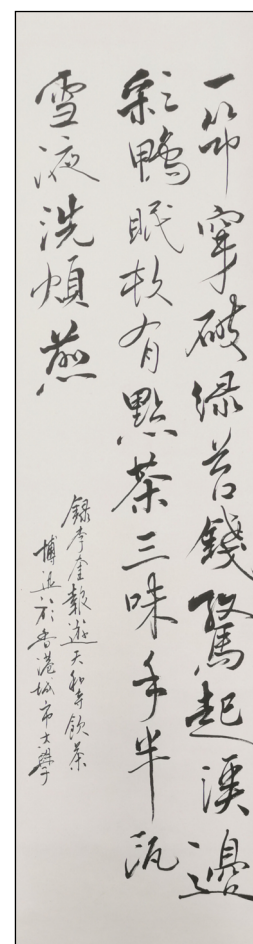 一筇穿破绿苔錢驚起溪邊
彩鴨眠有點茶三味手半甌
雪液洗煩煎
錄李奎報遊天和寺飲茶
博於香港城市大學